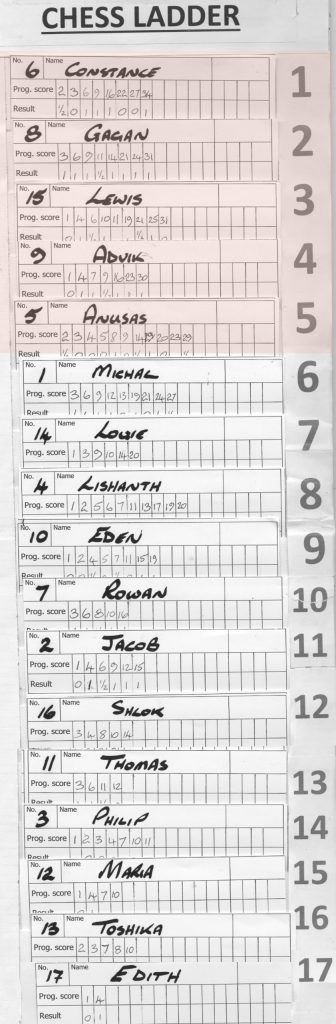 CHESS LADDER
No. Name
6 CONSTANCE 1
Prog. score 2 3 6 9 16 22 27 34
Result ½ 0 1 1 1 0 0 1
No. Name
8 GAGAN 2
Prog. score 3 6 9 11 14 21 24 31
Result
No. Name
15 LEWIS 3
Prog. score 1 4 6 10 11 19 21 25 31
No. Name
9 ADVIK 4
Prog. score 1 4 7 9 16 23 30
Result
No. Name
5 ANUSAS 5
Prog. score 2 3 4 5 8 9 14 19 20 23 29
Result
No. Name
1 MICHAL 6
Prog. score 3 6 9 12 13 19 21 24 27
Result
No. Name
14 LOUIE 7
Prog. score 1 3 9 10 14 20
No. Name
4 LISHANTH 8
Prog. score 1 2 5 6 7 11 13 17 19 20
No. Name
10 EDEN 9
Prog. score 1 2 4 5 7 11 15 19
No. Name
7 ROWAN 10
Prog. score 3 6 8 10 16
No. Name
2 JACOB 11
Prog. score 1 4 6 9 12 15
Result 0 1 ½ 1 1 1
No. Name
16 SHLOK 12
Prog. score 3 4 8 10 14
No. Name
11 THOMAS 13
Prog. score 3 6 11 12
Result
No. Name
3 PHILIP 14
Prog. score 1 2 3 4 7 10 11
Result
No. Name
12 MARIA 15
Prog. score 1 4 7 10
No. Name
13 TOSHIKA 16
Prog. score 2 3 7 8 10
No. Name
17 EDITH 17
Prog. score 1 4
Result 0 1